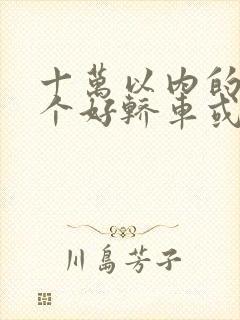 十萬以內的
个好轎車或
川島芳子